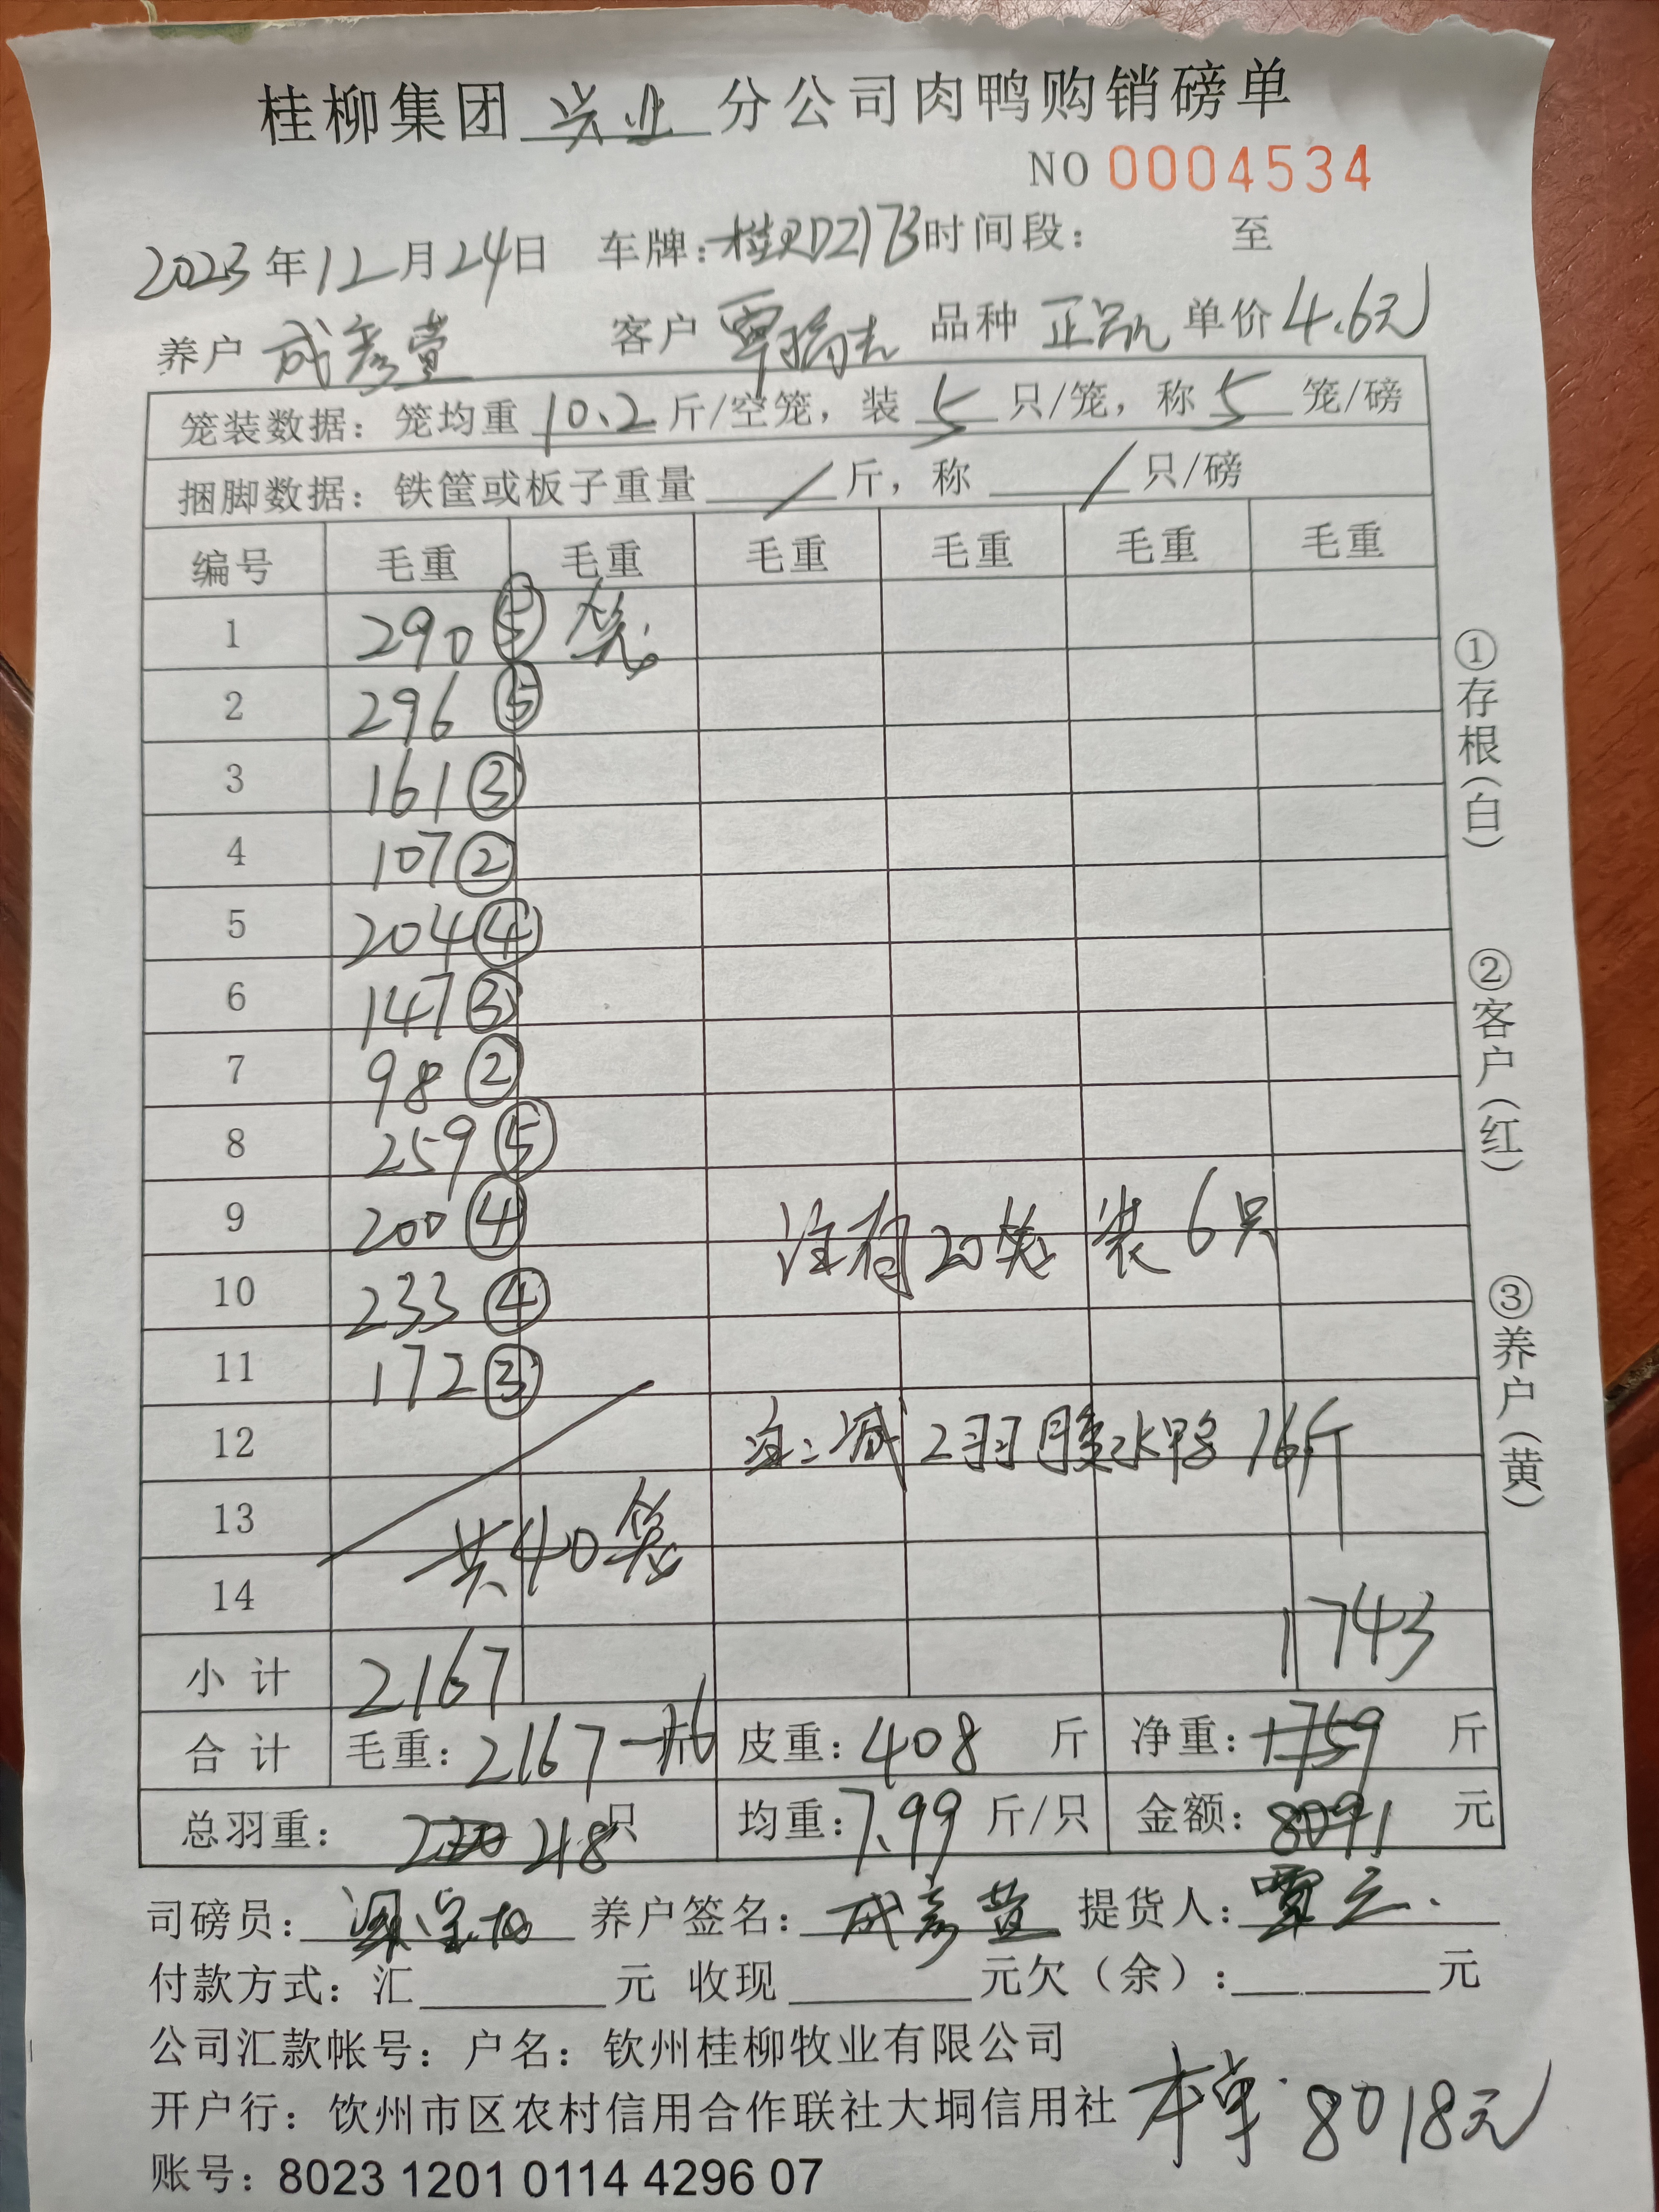 桂柳集团 兴业 分公司肉鸭购销磅单
NO 0004534
2023年12月24日 车牌:桂RD2173时间段: 至
养户 成彦萱 客户 覃 品种 正品 单价4.6元
笼装数据:笼均重 10.2 斤/空笼,装 5 只/笼,称 5 笼/磅
捆脚数据:铁筐或板子重量 / 斤,称 / 只/磅
编号 毛重 毛重 毛重 毛重 毛重 毛重
1 290 ⑤ 笼
2 296 ⑤
3 161 ③
4 107 ②
5 204 ④
6 147 ③
7 98 ②
8 259 ⑤
9 200 ④ 注有20笼装6只
10 233 ④
11 172 ③
12 注:减2羽腹水鸭16斤
13
共40笼
14
1743
小计 2167
合计 毛重:2167-16斤 皮重:408 斤 净重:1759 斤
总羽重: 220 218只 均重:7.99 斤/只 金额:8091 元
司磅员: 养户签名:成彦萱 提货人:覃
付款方式:汇 元 收现 元欠(余): 元
公司汇款帐号:户名:钦州桂柳牧业有限公司
开户行:钦州市区农村信用合作联社大垌信用社
本单8018元
账号:8023 1201 0114 4296 07
①存根(白)
②客户(红)
③养户(黄)